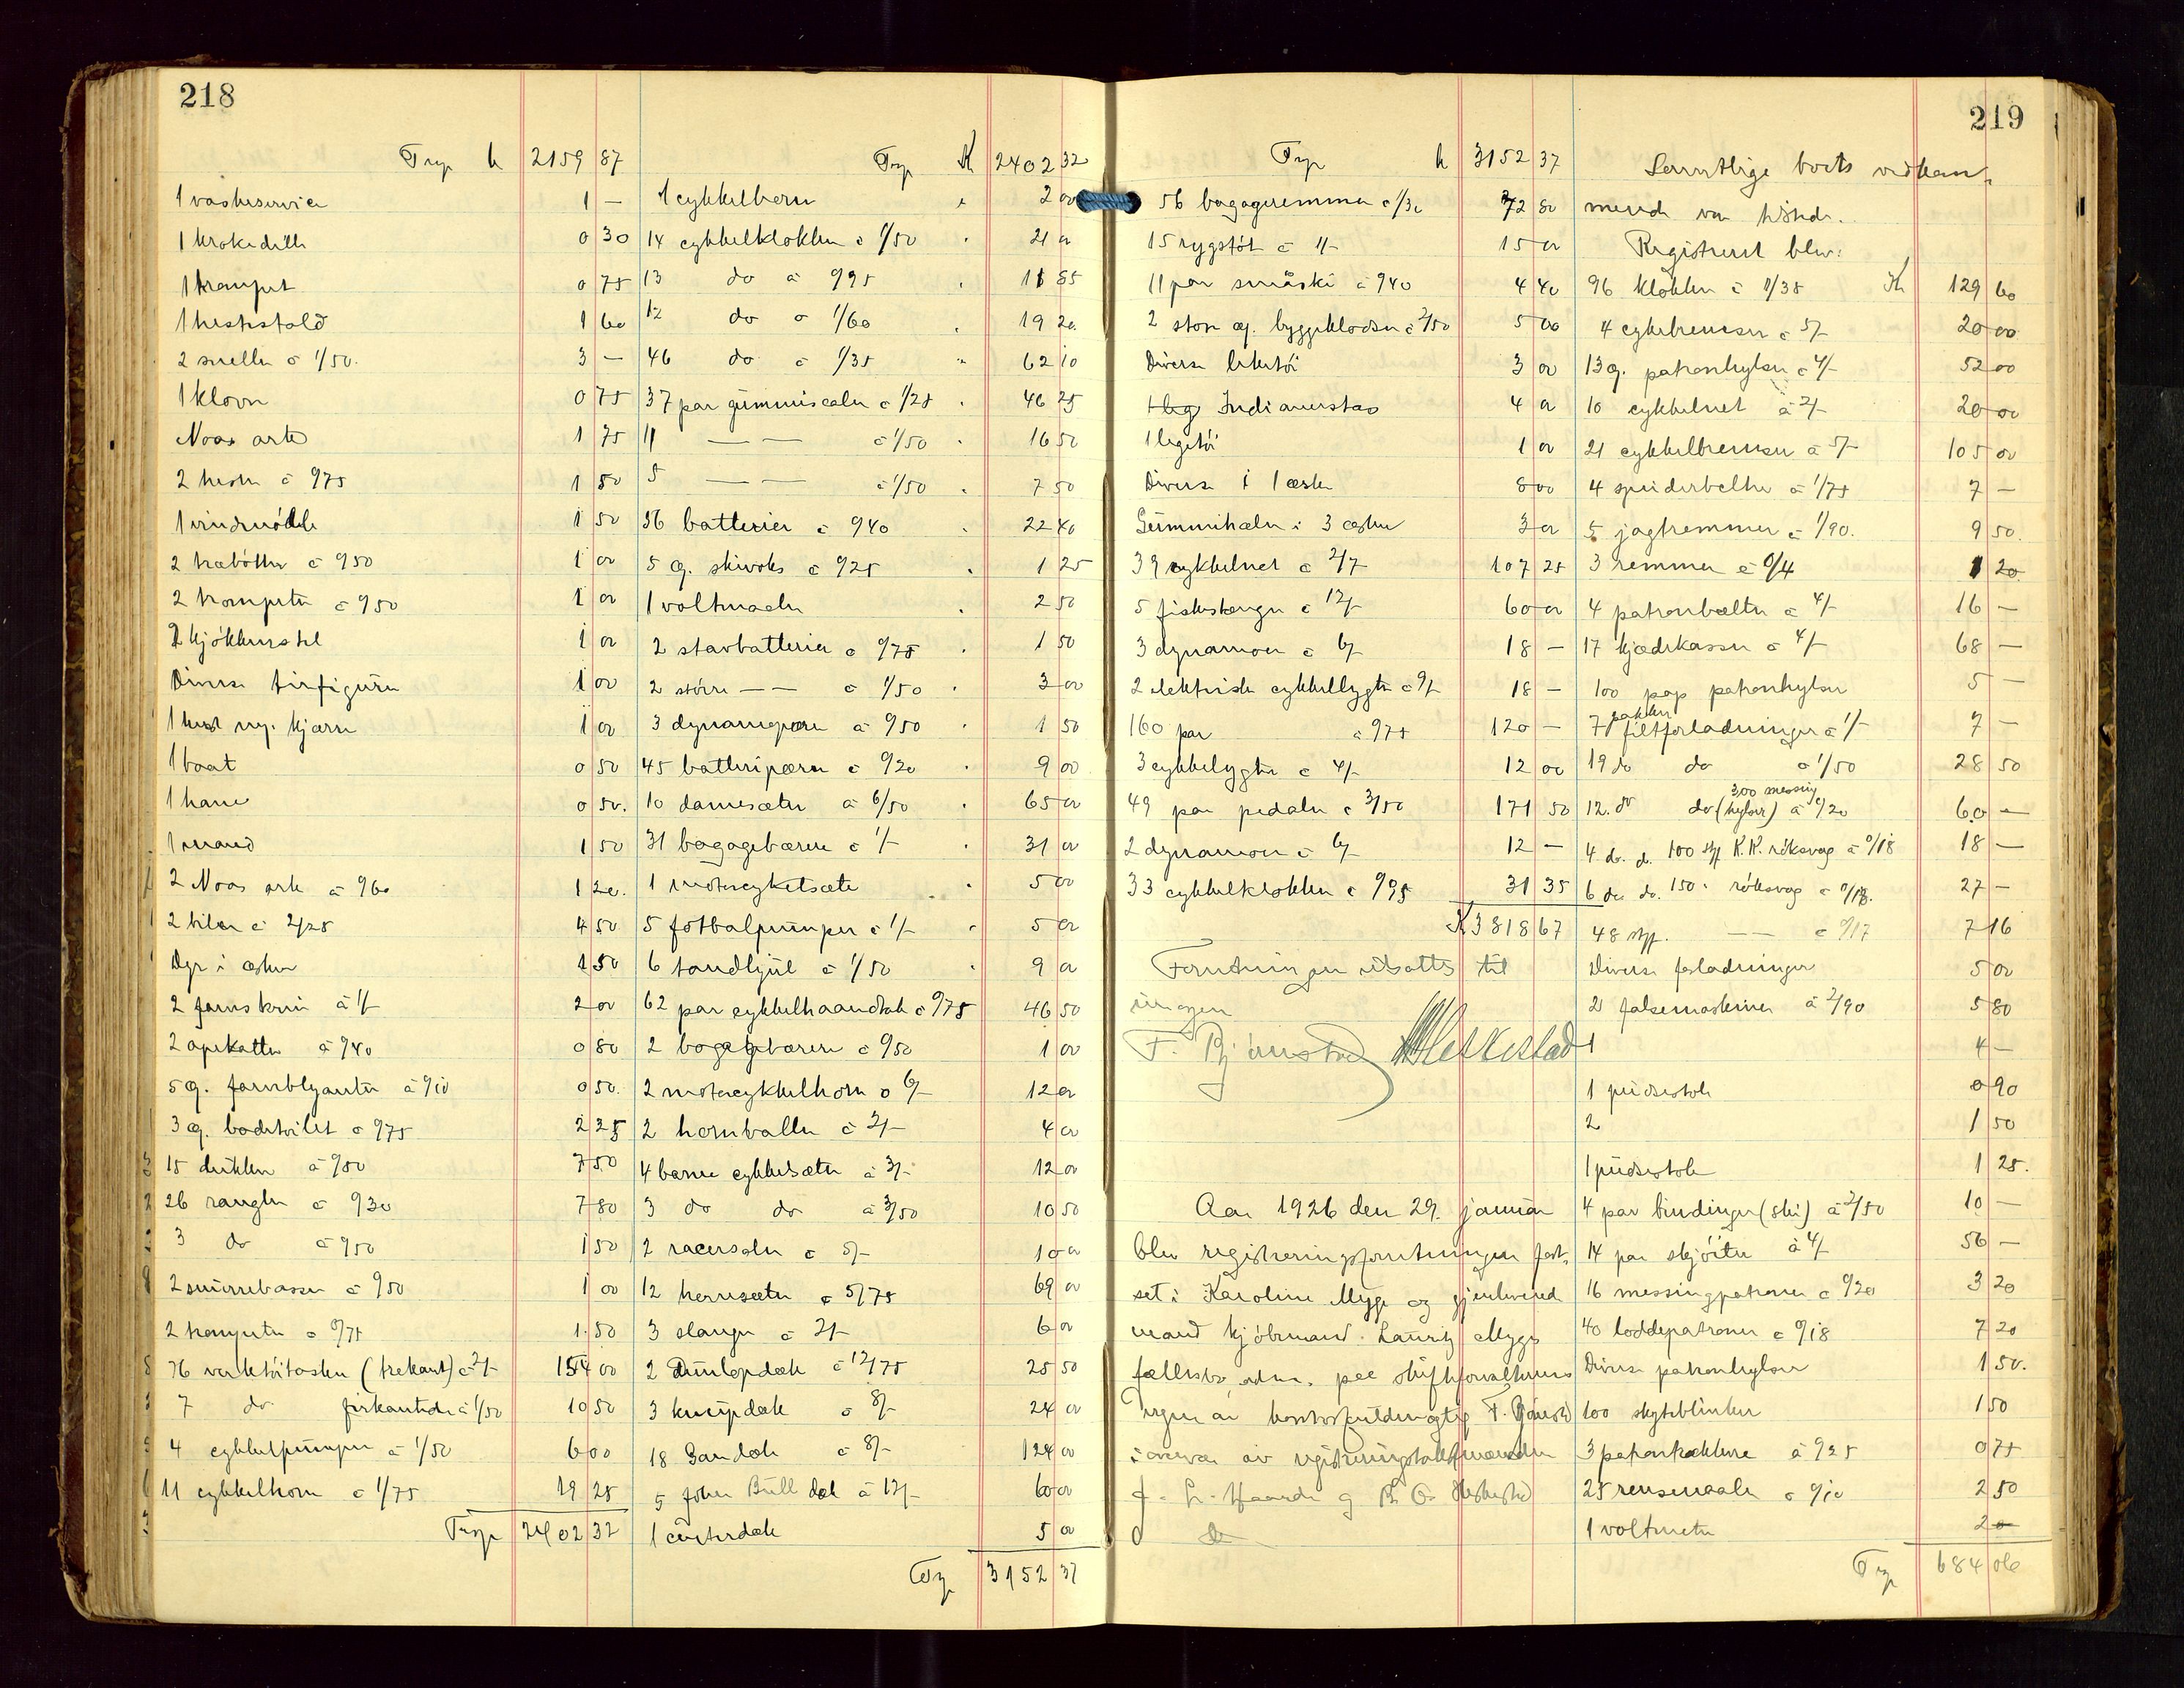 218
Trp k 2159 87
1 vaskeservice 1 —
1 krokedille 0 30
1 trompet 0 75
1 heststald 1 60
2 sneller à 1/50. 3 —
1 klovn 0 75
Noas ark 1 75
2 hester à 0/75 1 50
1 vindmölle 1 50
2 træbötter à 0/50 1 00
2 trompeter à 0/50 1 00
2 kjökkenstel 1 00
Diverse tinfigurer 1 00
1 hest og kjærre 1 00
1 baat 0 50
1 hane 0 50.
1 mand 1 50
2 Noas ark à 0/60 1 20.
2 biler à 2/25 4 50
Dyr i æsker 1 50
2 jernskrin à 1/- 2 00
2 apekatter à 0/40 0 80
5 æ. farveblyanter à 0/10 0 50.
3 æ. badetoilet à 0/75 2 25
15 dukker à 0/50 7 50
26 rangler à 0/30 7 80
3 do à 0/50 1 50
2 snurrebasser à 0/50 1 00
2 trompeter à 0/75 1.50
76 verktöitasker (trekant) à 2/- 154 00
7 do. firkantede à 1/50 10 50
4 cykkelpumper à 1/50 6 00
11 cykkelhorn à 1/75 19 25
Trsp 2402 32
Trsp K 2402 32
1 cykkelhorn 2 00
14 cykkelklokker à 1/50 21 00
13 do à 0/95 11 85
12 do à 1/60 19 20.
46 do à 1/35 62 10
37 par gummisaaler à 1/25 46 25
11 — — à 1/50 16 50
5 — — à 1/50 7 50
56 batterier à 0/40 22 40
5 æ. skivoks à 0/25 1 25
1 voltmaaler 2 50
2 stavbatterier à 0/75 1 50
2 större — — à 1/50 3 00
3 dynamopære à 0/50 1 50
45 batteripærer à 0/20 9 00
10 damesæter à 6/50 65 00
31 bagagebærere à 1/- 31 00
1 motorcykelsæte 5 00
5 fotbalpumper à 1/- 5 00
6 tandhjul à 1/50 9 00
62 par cykkelhaandtak à 0/75 46 50
2 bagagebærere à 0/50 1 00
2 motorcykkelhorn à 6/- 12 00
2 hornballer à 2/- 4 00
4 barne cykkelsæter à 3/- 12 00
3 do do à 3/50 10 50
2 racersaler à 5/- 10 00
12 herresæter à 5/75 69 00
3 slanger à 2/- 6 00
2 Dunlopdæk à 12/75 25 50
3 knupdæk à 8/- 24 00
18 Gan dæk à 8/- 124 00
5 John Bull dæk à 12/- 60 00
1 dæk 5 00
Trsp 3152 37
219
Trsp k 3152 37
56 bagageremmer à 1/30 72 80
15 rygstöt à 1/- 15 00
11 par smaaski à 0/40 4 40
2 store æ. byggeklodser à 2/50 5 00
Diverse leketöi 3 00
1 leg Indianerstas 4 00
1 legetöi 1 00
Diverse i 1 æske 8 00
Gummihæler i 3 æsker 3 00
39 cykkelnet à 2/7 107 25
5 fiskestænger à 12/- 60 00
3 dynamoer à 6/- 18 —
2 elektriske cykkellygter à 9/- 18 —
160 par à 0/75 120 —
3 cykkellygter à 4/- 12 00
49 par pedaler à 3/50 171 50
2 dynamoer à 6/- 12 —
33 cykkelklokker à 0/95 31 35
K 3818 67
Forretningen utsattes til
imorgen
F. Bjönstad Heskestad
Aar 1926 den 29. januar
blev registreringsforretningen fort-
sat i Karoline Myge og gjenlevende
mand kjöbmand. Lauritz Myges
fællesbo, adm. paa skifteforvalterens
vegne av kontorfuldmægtig F. Bjönstad
i overvær av registreringstakstmændene
J. L. Haarde og B. O. Heskestad
Samtlige boets vedkom-
mende var tilstede.
Registrert blev:
96 klokker à 1/35 K 129 60
4 cykelremser à 5/- 20 00
13 æ. patronhylser à 4/- 52 00
10 cykkelnet à 2/- 20 00
21 cykkelbremser à 5/- 105 00
4 speiderbelter à 1/75 7 —
5 jagtremmer à 1/90. 9 50.
3 remmer à 0/4 1 20
4 patronbelter à 4/- 16 —
17 kjædekasser à 4/- 68 —
100 pap patronhylser 5 —
7 pakker filtforladninger à 1/- 7 —
19 do do à 1/50 28 50
12. do do (300 messing hylser) à 0/20 60 —
4 do. d. 100 stk K.K. röksvag à 0/18 18 —
6 do do. 150 " röksvag à 0/18. 27 —
48 stk. — — à 0/17 7 16
Diverse forladninger 5 00
2 falsemaskiner à 2/90 5 80
1 4 —
1 pudsestok 0 90
2 1 50
1 pudsestok 1 25.
4 par bindinger (ski) à 2/50 10 —
14 par skjöiter à 4/- 56 —
16 messingpatroner à 0/20 3 20
40 loddepatroner à 0/18 7 20
Diverse patronhylser 1 50.
100 skyteblinker 1 50
3 patrontrækkere à 0/25 0 75
25 rensenaale à 0/10 2 50
1 voltmeter 2 —
Trsp 684 06